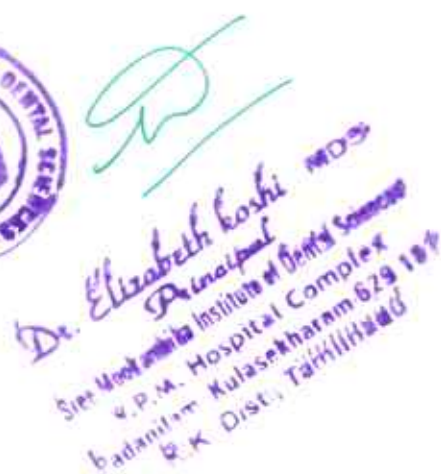 DENTAL SCIENCES
Dr. Elizabeth Koshi MDS
Principal
Sree Mookambika Institute of Dental Sciences
V.P.M. Hospital Complex
Padanilam Kulasekharam 629 161
K.K Dist., Tamilnadu